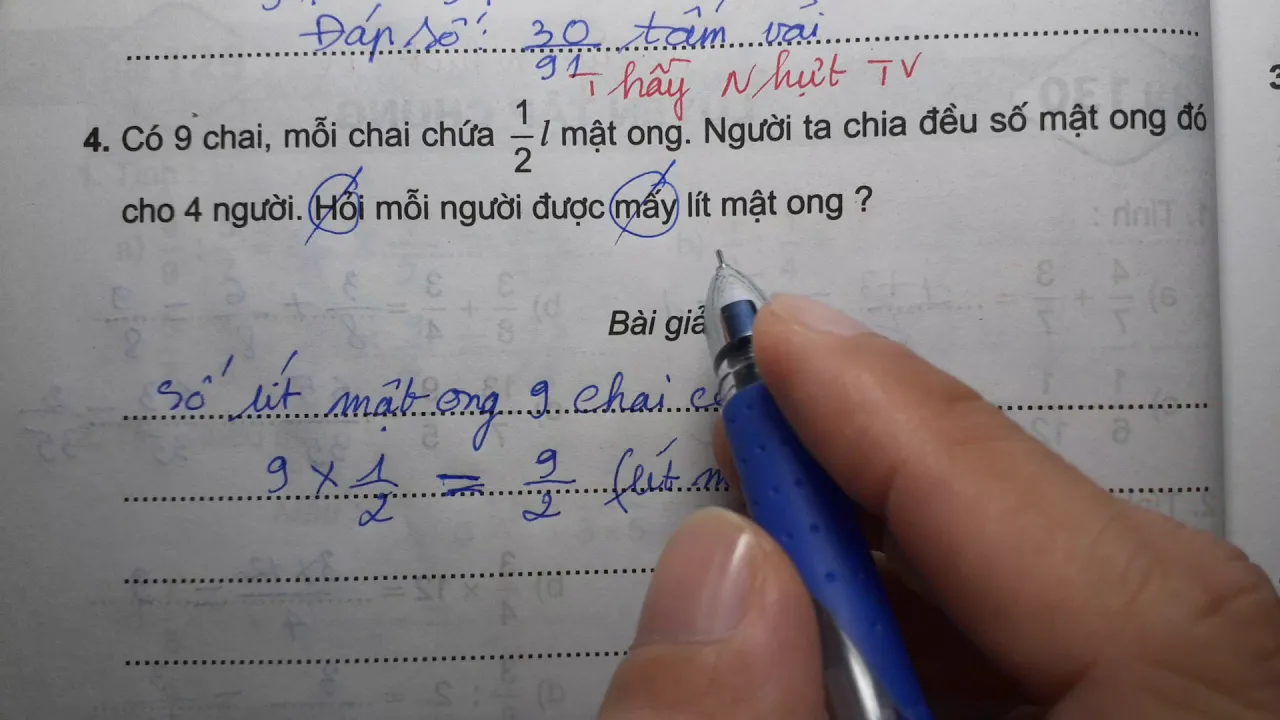 Đáp số: 30/91 tấm vải
Thầy Nhựt TV
4. Có 9 chai, mỗi chai chứa 1/2 l mật ong. Người ta chia đều số mật ong đó
cho 4 người. Hỏi mỗi người được mấy lít mật ong ?
Bài giả
Số lít mật ong 9 chai
9 × 1/2 = 9/2 (lít m